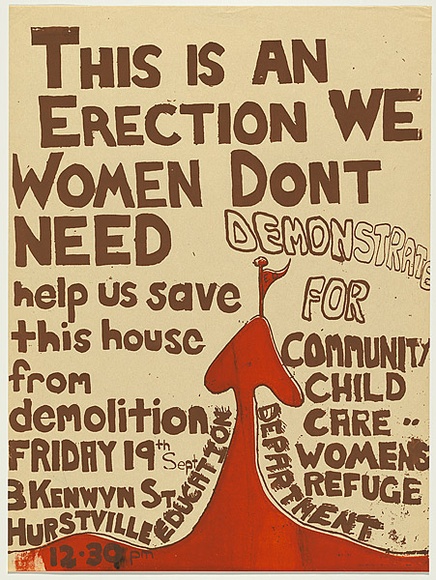 THIS IS AN
ERECTION WE
WOMEN DONT
NEED
DEMONSTRATE
FOR
help us save
this house
from
demolition
FRIDAY 19th Sept
3 KENWYN ST
HURSTVILLE
12.30 pm
EDUCATION
DEPARTMENT
COMMUNITY
CHILD
CARE ..
WOMENS
REFUGE